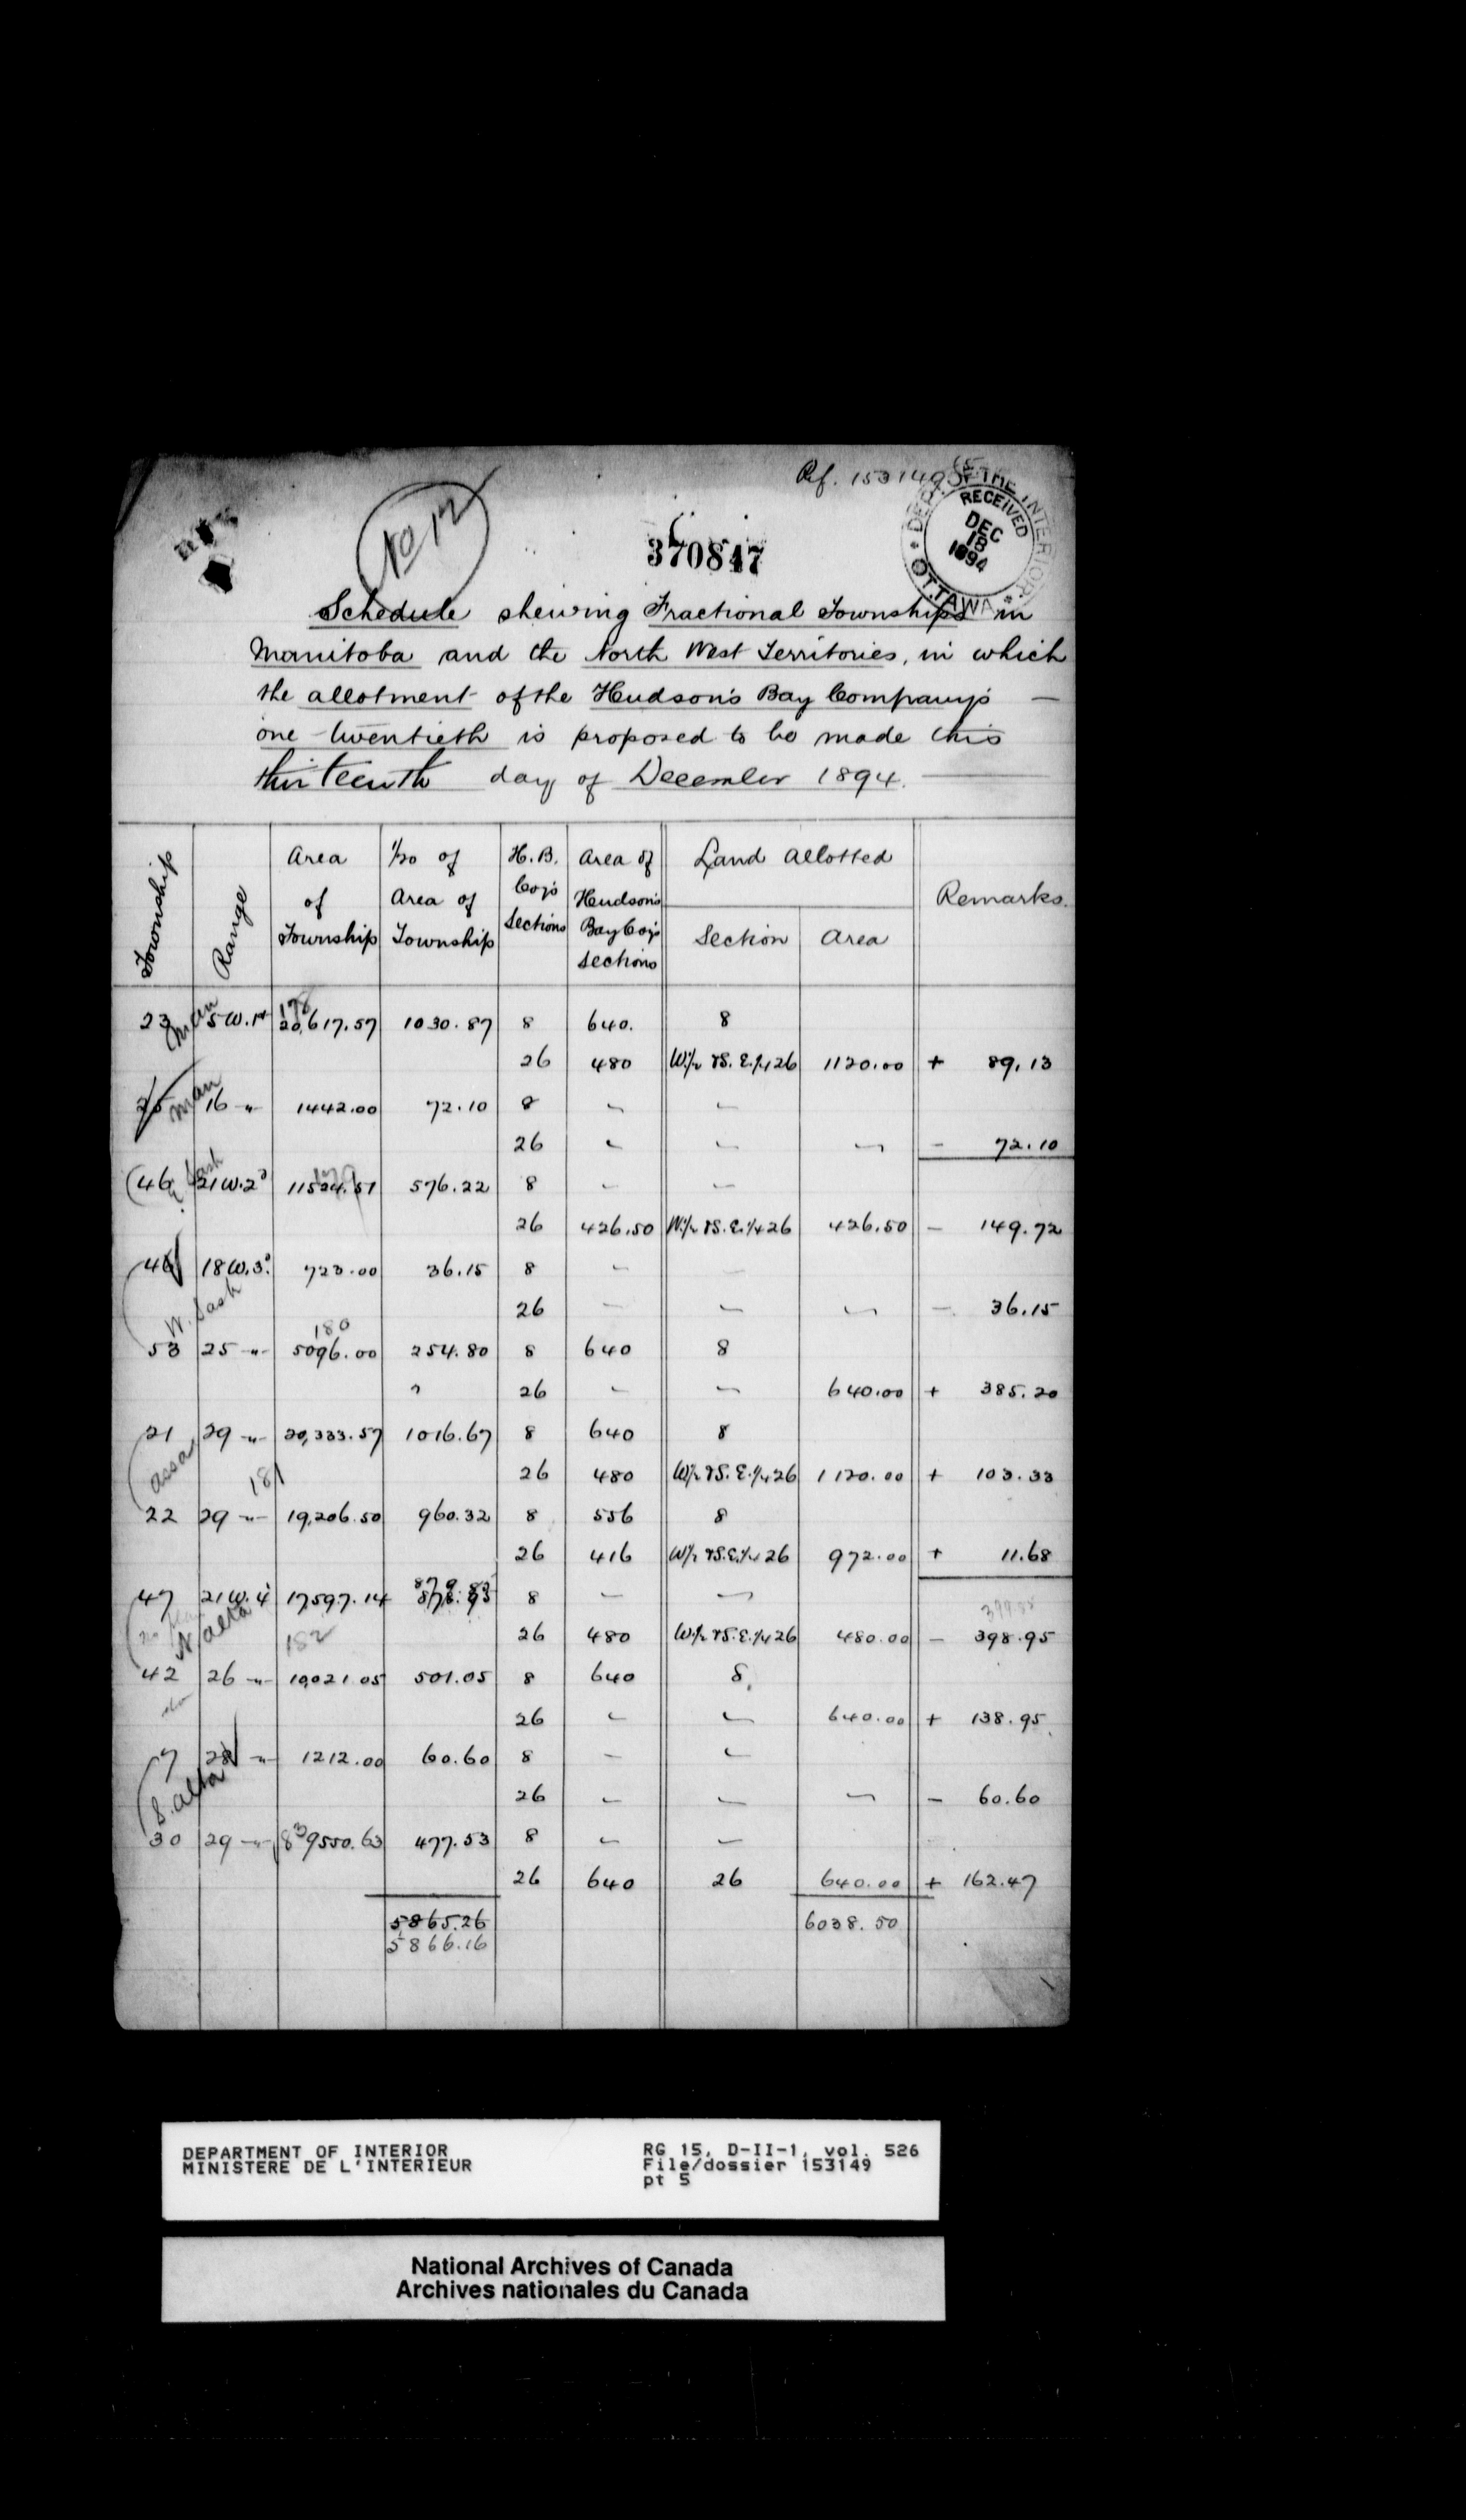 Ref. 153149
DEPT. OF THE INTERIOR
RECEIVED
DEC
18
1894
OTTAWA
No 12
370847
Schedule shewing Fractional Townships in
Manitoba and the North West Territories, in which
the allotment of the Hudson's Bay Company's —
one-twentieth is proposed to be made this
thirteenth day of December 1894.
Township Range Area of Township 1/20 of Area of Township H.B. Coy's Sections Area of Hudson's Bay Coy's Sections Land Allotted Section Area Remarks.
178
Man
23 5 W. 1st 20,617.57 1030.87 8 640. 8
26 480 W.½ & S.E.¼ 26 1120.00 + 89.13
Man
25 16 -"- 1442.00 72.10 8 - -
26 - - - - 72.10
Sask
179
46 21 W.2d 11524.51 576.22 8 - -
26 426.50 W.½ & S.E.¼ 26 426.50 - 149.72
46 18 W.3d. 723.00 36.15 8 - -
26 - - - - 36.15
W. Sask
180
53 25 -"- 5096.00 254.80 8 640 8
26 - - 640.00 + 385.20
21 29 -"- 20,333.57 1016.67 8 640 8
Assa
181
26 480 W½ & S.E.¼ 26 1120.00 + 103.33
22 29 -"- 19,206.50 960.32 8 556 8
26 416 W½ & S.E.¼ 26 972.00 + 11.68
879.85
47 21 W.4 17,597.14 878.95 8 - -
399.85
N. Alta
182
26 480 W.½ & S.E.¼ 26 480.00 - 398.95
42 26 -"- 10,021.05 501.05 8 640 8.
26 - - 640.00 + 138.95
7 28 -"- 1212.00 60.60 8 - -
S. Alta
26 - - - - 60.60
183
30 29 -"- 9550.63 477.53 8 - -
26 640 26 640.00 + 162.47
5865.26 6038.50
5866.16
DEPARTMENT OF INTERIOR
MINISTERE DE L'INTERIEUR
RG 15, D-II-1, vol. 526
File/dossier 153149
pt 5
National Archives of Canada
Archives nationales du Canada